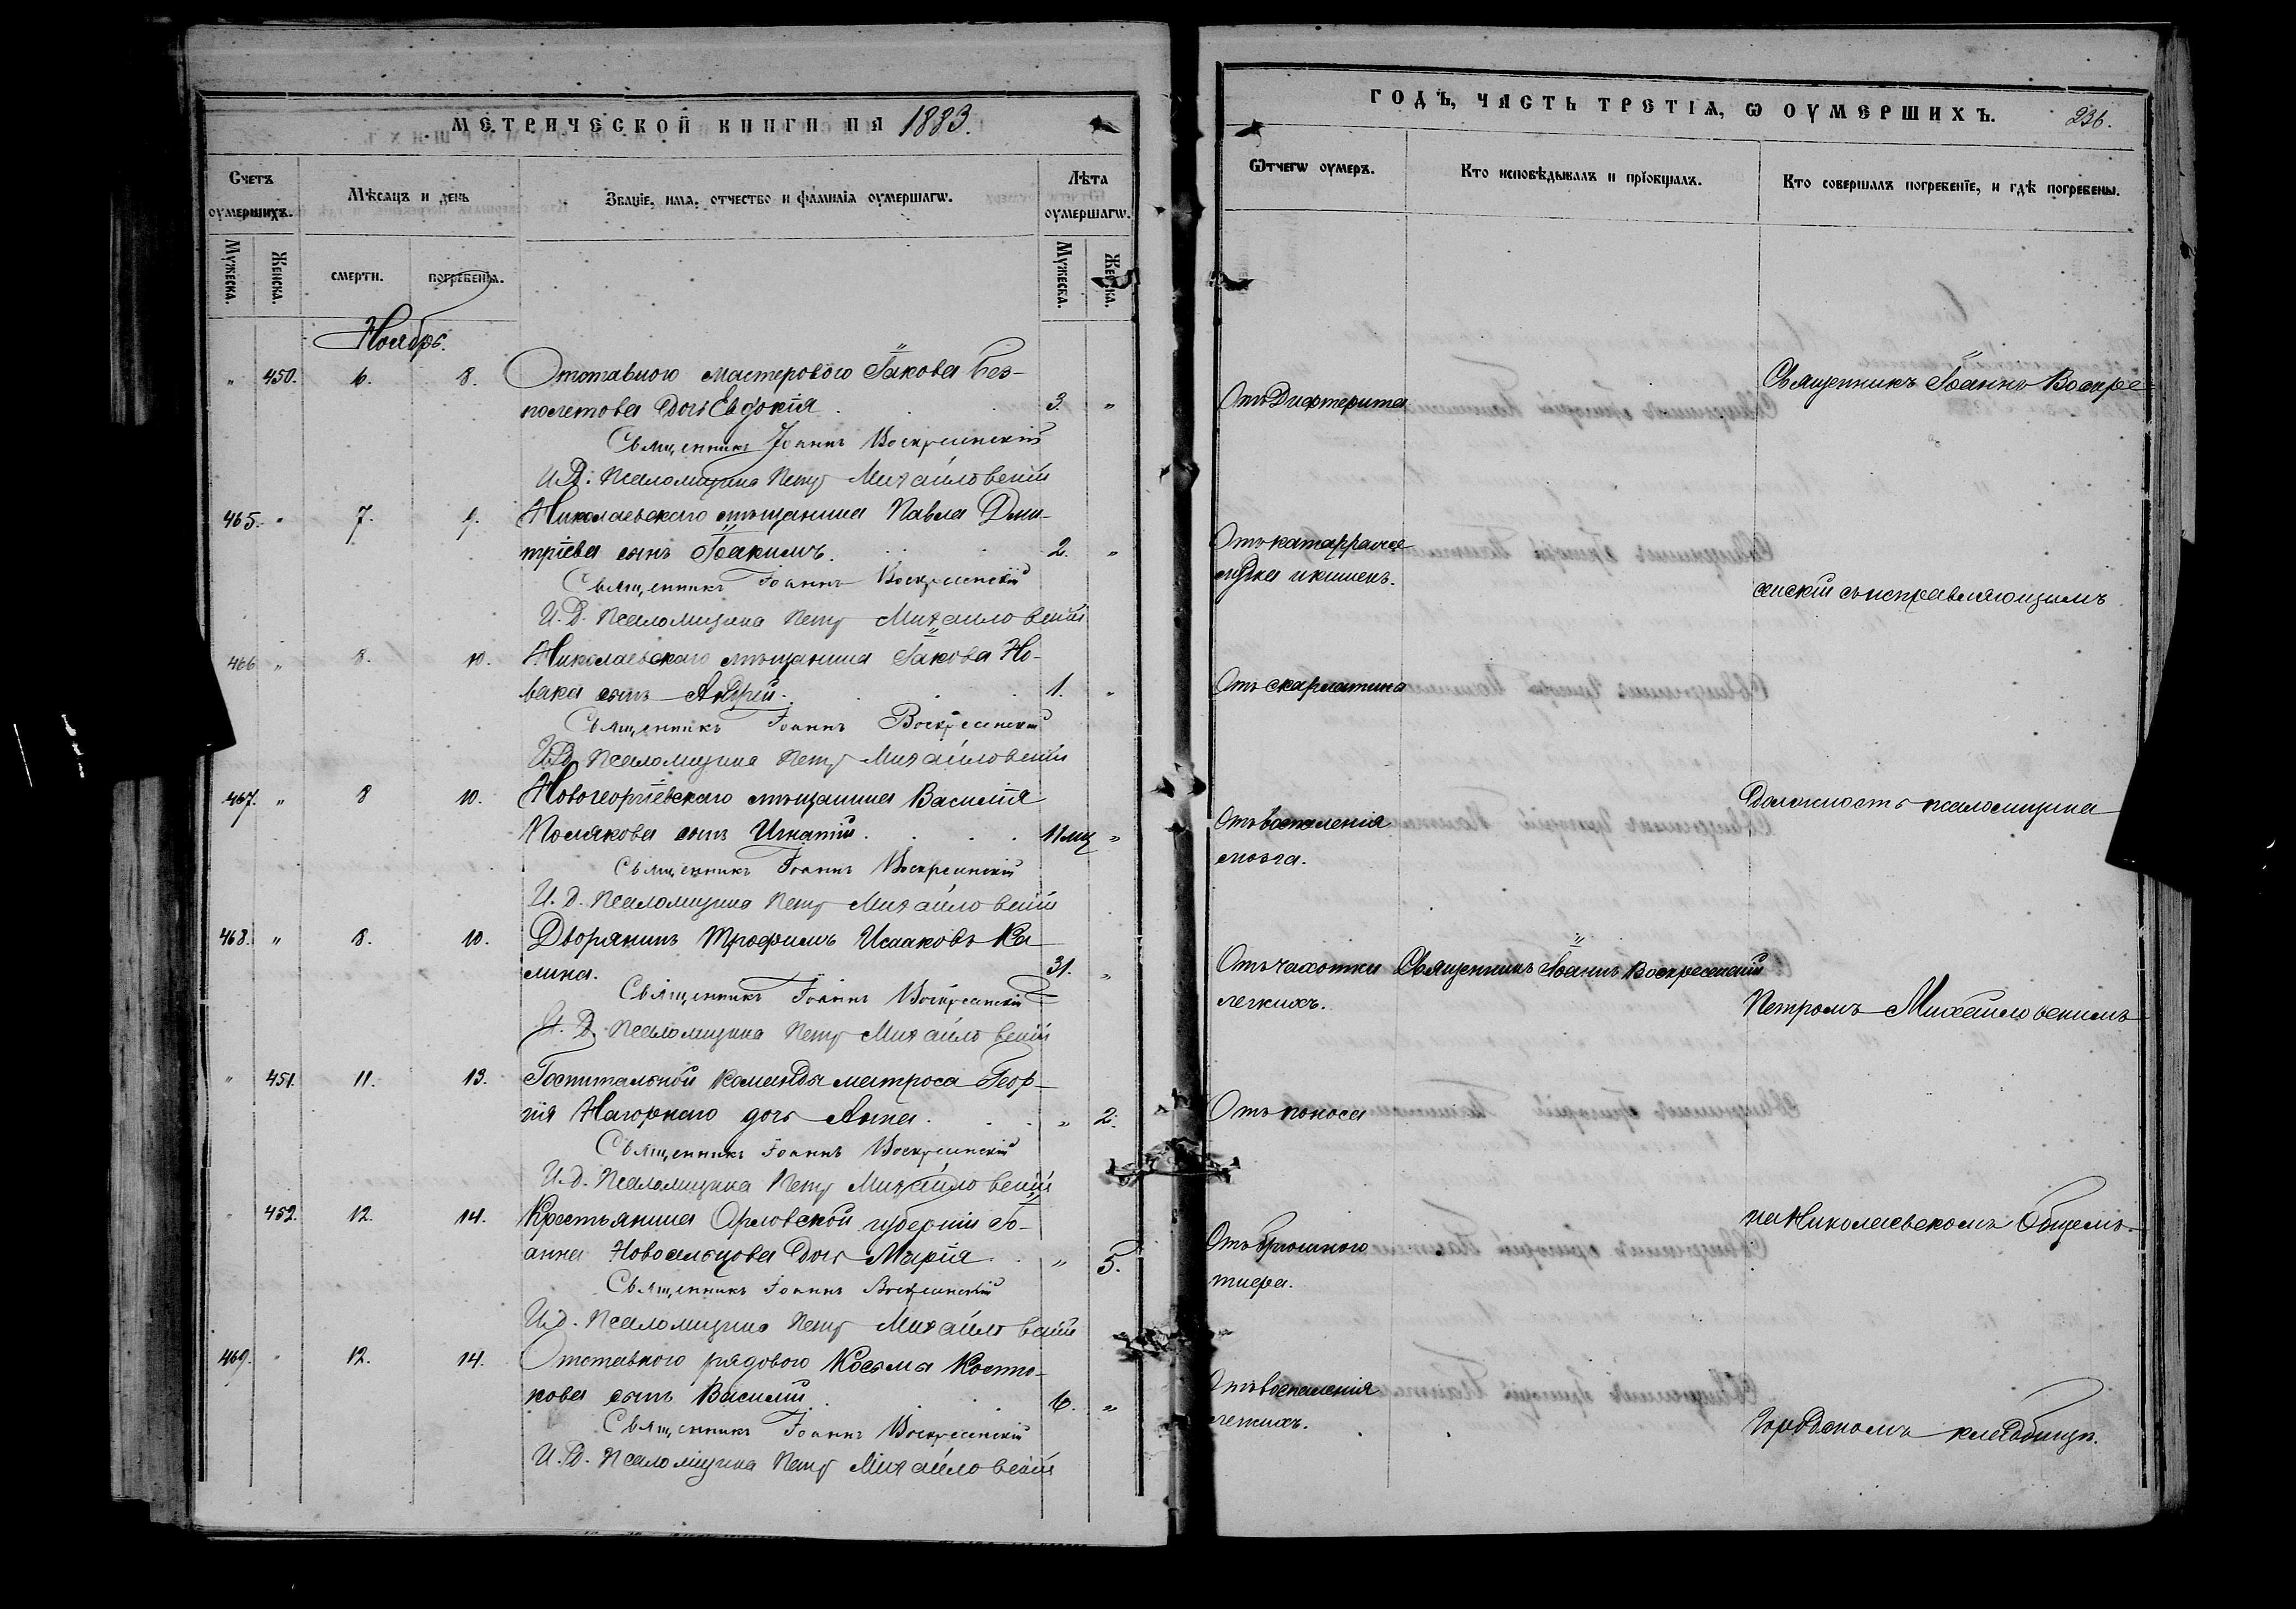 МЕТРИЧЕСКОЙ КНИГИ НА 1883.
Счетъ оумершихъ.
Мѣсяцъ и день
Званіе, имя, отчество и фамилія оумершагѡ.
Лѣта оумершагѡ.
Мужеска.
Женска.
смерти.
погребенія.
Мужеска.
Женска.
Ноябрь.
" 450. 6. 8. Отставного мастерового Іакова Без-
полетова дочь Евдокія 3. "
Священникъ Іоаннъ Воскресенскій
И.Д. Псаломщика Петръ Михайловскій
465. " 7. 9. Николаевскаго мѣщанина Павла Дми-
тріева сынъ Іоакимъ. 2. "
Священникъ Іоаннъ Воскресенскій
И.Д. Псаломщика Петръ Михайловскій
466 " 8. 10. Николаевскаго мѣщанина Іакова Но-
вака сынъ Андрей. 1. "
Священникъ Іоаннъ Воскресенскій
И.Д. Псаломщика Петръ Михайловскій
467. " 8 10. Новогеоргіевскаго мѣщанина Василія
Полякова сынъ Игнатій. 11 мц "
Священникъ Іоаннъ Воскресенскій
И.Д. Псаломщика Петръ Михайловскій
468. " 8. 10. Дворянинъ Трофимъ Исааковъ Ка-
лина. 31. "
Священникъ Іоаннъ Воскресенскій
И.Д. Псаломщика Петръ Михайловскій
" 451. 11. 13. Госпитальной команды матроса Геор-
гія Нагорнаго дочь Анна. " 2.
Священникъ Іоаннъ Воскресенскій
И.д. Псаломщика Петръ Михайловскій
" 452. 12. 14. Крестьянина Орловской губерніи Іо-
анна Новосельцова дочь Марія. " 5.
Священникъ Іоаннъ Воскресенскій
И.д. Псаломщика Петръ Михайловскій
469. " 12. 14. Отставного рядового Косьма Косто-
кова сынъ Василій 6. "
Священникъ Іоаннъ Воскресенскій
И.Д. Псаломщика Петръ Михайловскій
ГОДЪ, ЧАСТЬ ТРЕТІЯ, Ѡ ОУМЕРШИХЪ. 236.
Ѿтчегѡ оумеръ.
Кто исповѣдывалъ и пріобщалъ.
Кто совершалъ погребеніе, и гдѣ погребены.
Священникъ Іоаннъ Воскре-
Отъ Дифтерита
Отъ катарра же
лудка и кишекъ.
сенскій съ исправляющимъ
Отъ скарлатина
Должность псаломщика
Отъ воспаленія
мозга.
Отъ чахотки Священникъ Іоаннъ Воскресенскій
легкихъ.
Петромъ Михайловскимъ
Отъ поноса
на Николаевскомъ Общемъ
Отъ брюшного
тифа.
Отъ воспаленія
легкихъ.
Городскомъ кладбищѣ.